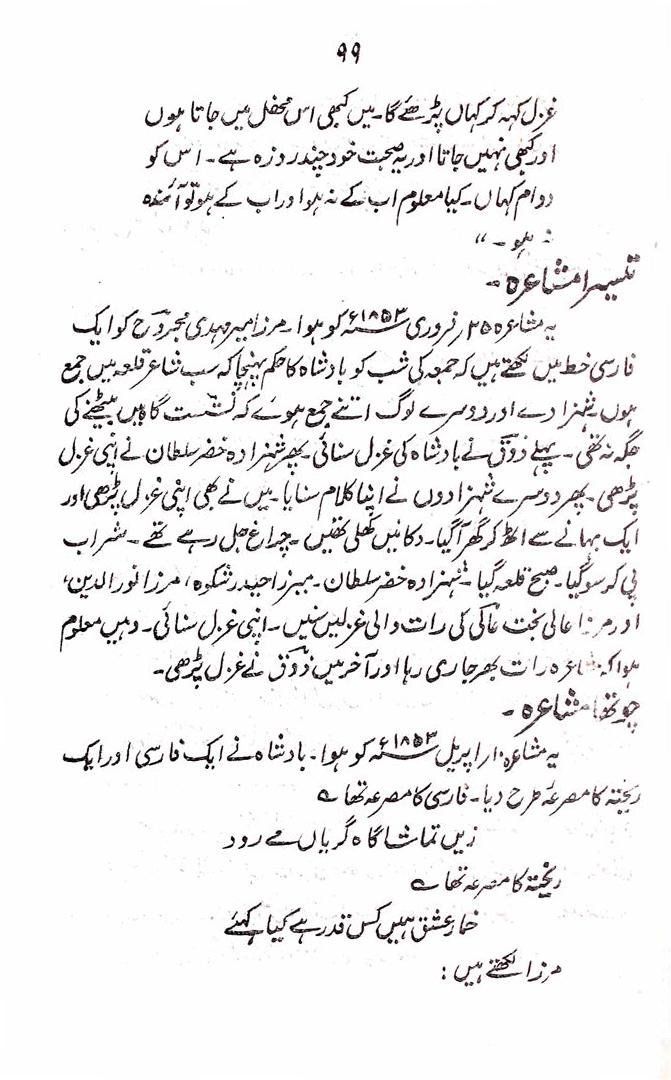 ۹۹
غزل کہہ کر کہاں پڑھے گا۔ میں کبھی اس محفل میں جاتا ہوں
اور کبھی نہیں جاتا اور یہ صحبت خود چند روزہ ہے۔ اس کو
دوام کہاں۔ کیا معلوم اب کے نہ ہو اور اب کے ہو تو آئندہ
نہ ہو۔“
تیسرا مشاعرہ۔
یہ مشاعرہ ۲۵ فروری ۱۸۵۳ء کو ہوا۔ مرزا میر مہدی مجروح کو ایک
فارسی خط میں لکھتے ہیں کہ جمعہ کی شب کو بادشاہ کا حکم پہنچا کہ سب شاعر قلعہ میں جمع
ہوں شہزادے اور دوسرے لوگ اتنے جمع ہوئے کہ نشست گاہ میں بیٹھنے کی
جگہ نہ تھی۔ پہلے ذوق نے بادشاہ کی غزل سنائی۔ پھر شہزادہ خضر سلطان نے اپنی غزل
پڑھی۔ پھر دوسرے شہزادوں نے اپنا کلام سنایا۔ میں نے بھی اپنی غزل پڑھی اور
ایک بہانے سے اٹھ کر گھر آگیا۔ دکانیں کھلی تھیں۔ چراغ جل رہے تھے۔ شراب
پی کر سو گیا۔ صبح قلعہ گیا۔ شہزادہ خضر سلطان۔ میرزا حیدر شکوہ، مرزا نور الدین،
اور مرزا عالی بخت عالی کی رات والی غزلیں سنیں۔ اپنی غزل سنائی۔ وہیں معلوم
ہوا کہ مشاعرہ رات بھر جاری رہا اور آخر میں ذوق نے غزل پڑھی۔
چوتھا مشاعرہ۔
یہ مشاعرہ ۱۰ اپریل ۱۸۵۳ء کو ہوا۔ بادشاہ نے ایک فارسی اور ایک
ریختہ کا مصرعہ طرح دیا۔ فارسی کا مصرعہ تھا ؎
زیں تماشا گاہ گریاں مے رود
ریختہ کا مصرعہ تھا ؎
خمار عشق ہمیں کس قدر ہے کیا کہئے
مرزا لکھتے ہیں :